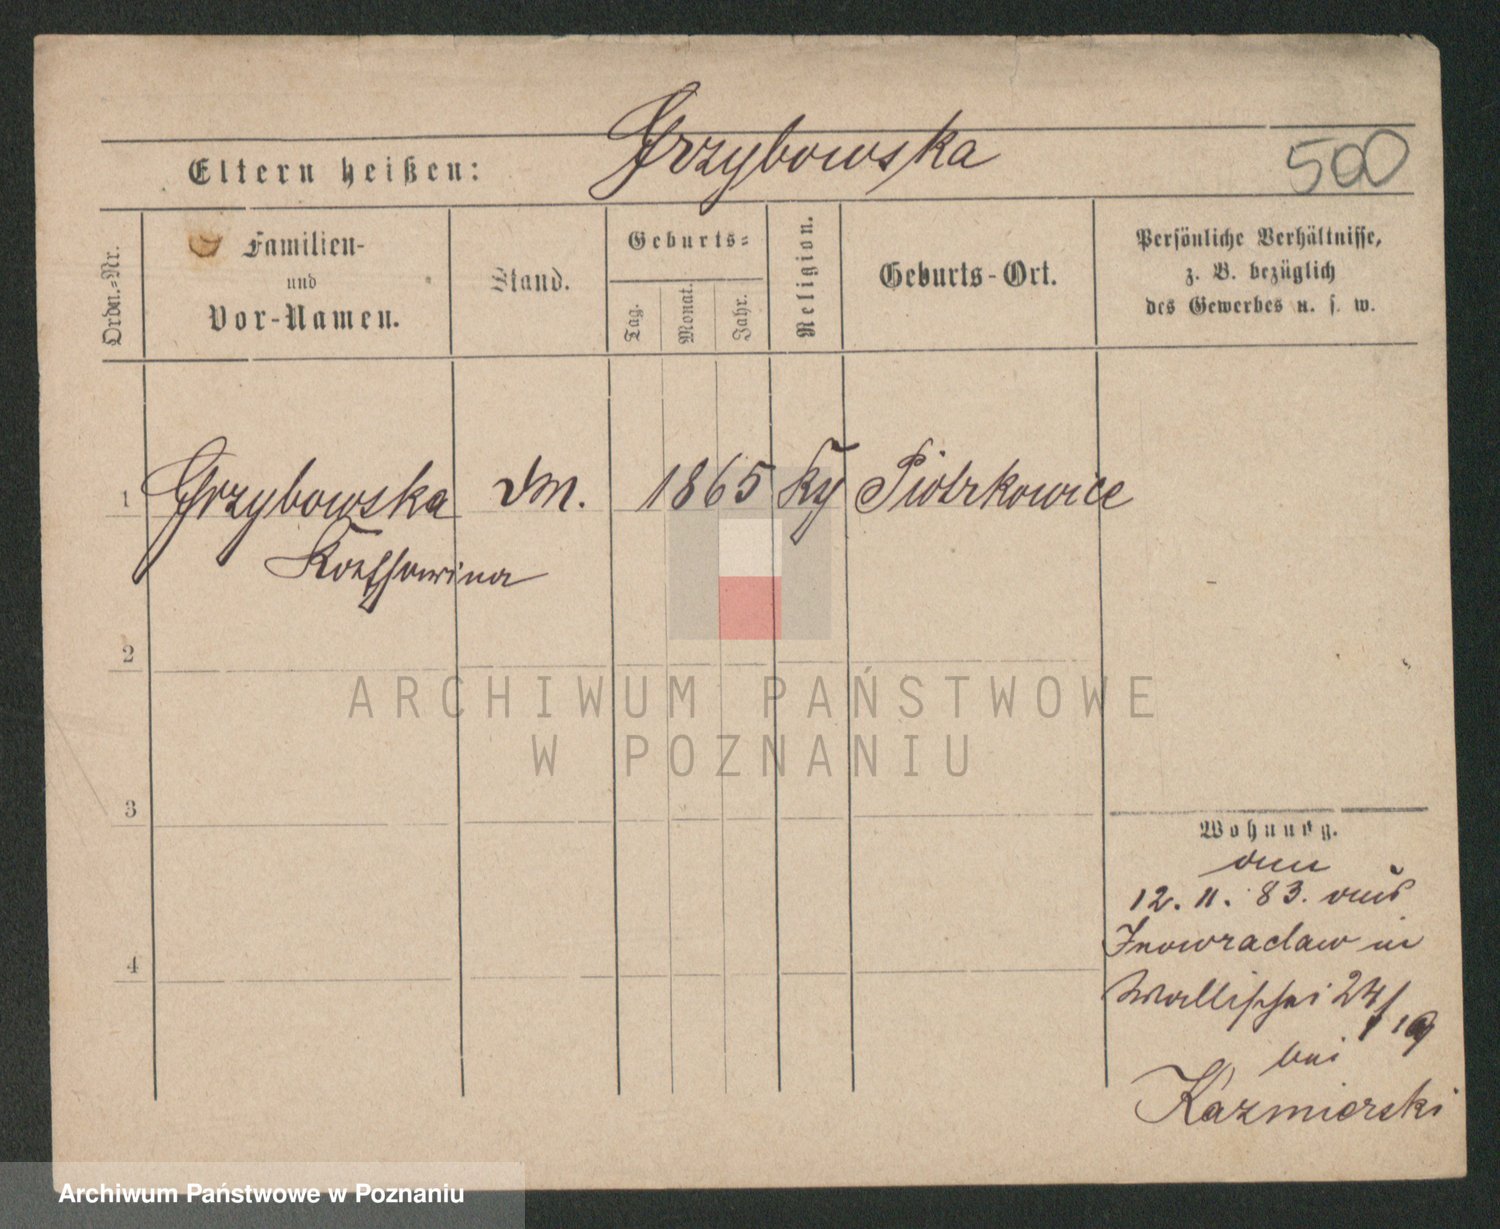 Grzybowska
Eltern heißen:
500
Ordn.=Nr.
Familien-
und
Vor-Namen.
Stand.
Geburts=
Tag.
Monat.
Jahr.
Religion.
Geburts-Ort.
Persönliche Verhältnisse,
z. B. bezüglich
des Gewerbes u. s. w.
1 Grzybowska dM. 1865 Piotrkowice
2
3
4
Wohnung.
am
12. 11. 83. aus
Inowraclaw in
Wallischei 24/
bei
Kazmierski
ARCHIWUM PAŃSTWOWE
W POZNANIU
Archiwum Państwowe w Poznaniu